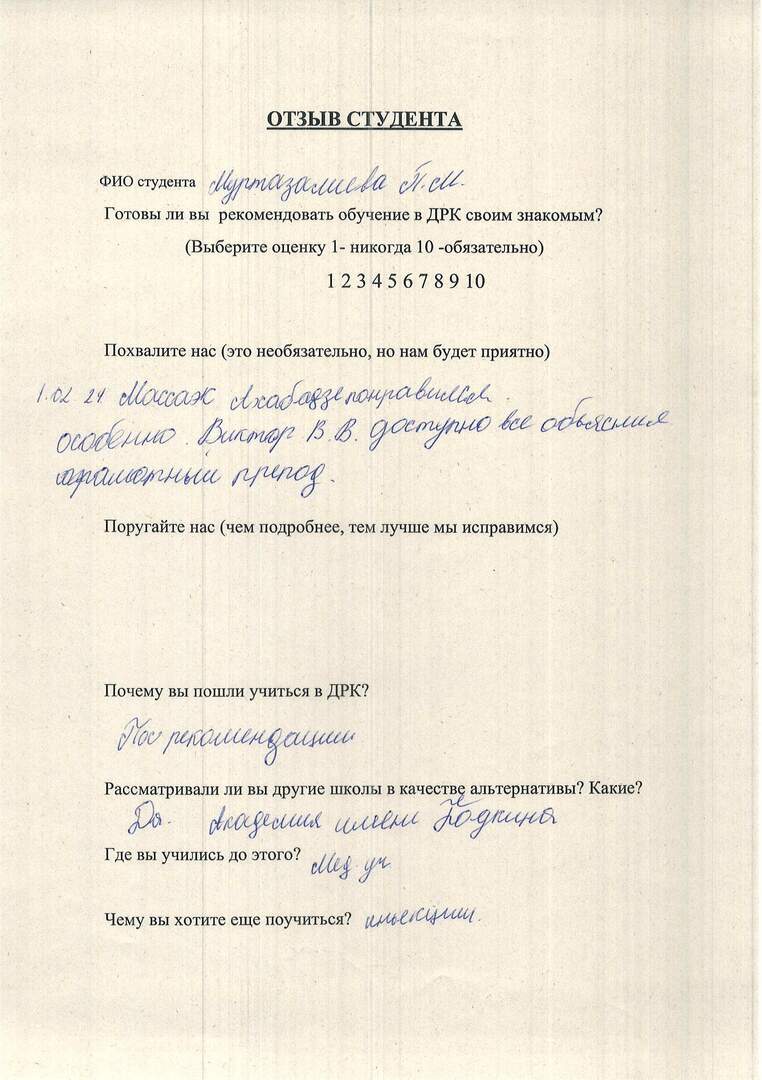 ОТЗЫВ СТУДЕНТА
ФИО студента Муртазалиева П.М.
Готовы ли вы рекомендовать обучение в ДРК своим знакомым?
(Выберите оценку 1- никогда 10 -обязательно)
1 2 3 4 5 6 7 8 9 10
Похвалите нас (это необязательно, но нам будет приятно)
1.02 24 Массаж Ахабадзе понравился.
особенно. Виктор В.В. доступно все объяснил
грамотный препод.
Поругайте нас (чем подробнее, тем лучше мы исправимся)
Почему вы пошли учиться в ДРК?
По рекомендации
Рассматривали ли вы другие школы в качестве альтернативы? Какие?
Да. Академия имени
Где вы учились до этого? Мед. уч.
Чему вы хотите еще поучиться? инъекции.